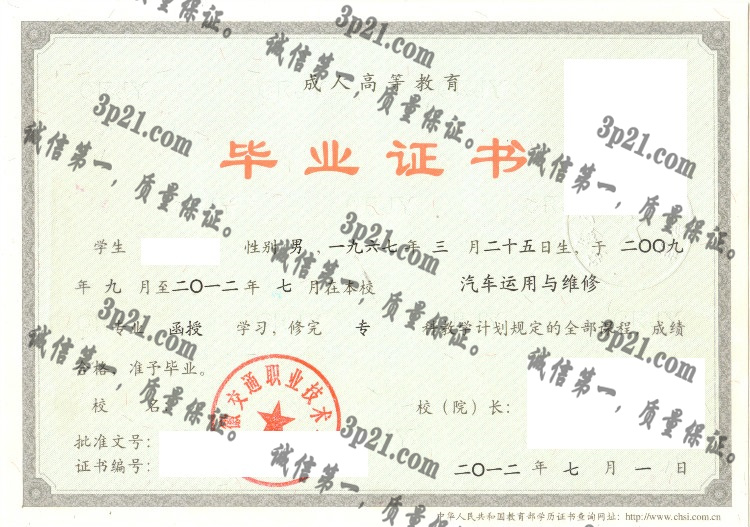 成人高等教育
毕业证书
学生 性别 男 ,一九六七年 三 月二十五日生,于 二〇〇九
年 九 月至二〇一二年 七 月在本校 汽车运用与维修
专业 函授 学习,修完 专 科教学计划规定的全部课程,成绩
合格,准予毕业。
校 名
徽交通职业技术
校(院)长:
批准文号:
证书编号:
二〇一二 年 七 月 一 日
中华人民共和国教育部学历证书查询网址:http://www.chsi.com.cn
3p21.com
诚信第一,质量保证。
3p21.com
诚信第一,质量保证。
3p21.com
诚信第一,质量保证。
3p21.com
诚信第一,质量保证。
3p21.com
诚信第一,质量保证。
3p21.com
诚信第一,质量保证。
3p21.com
诚信第一,质量保证。